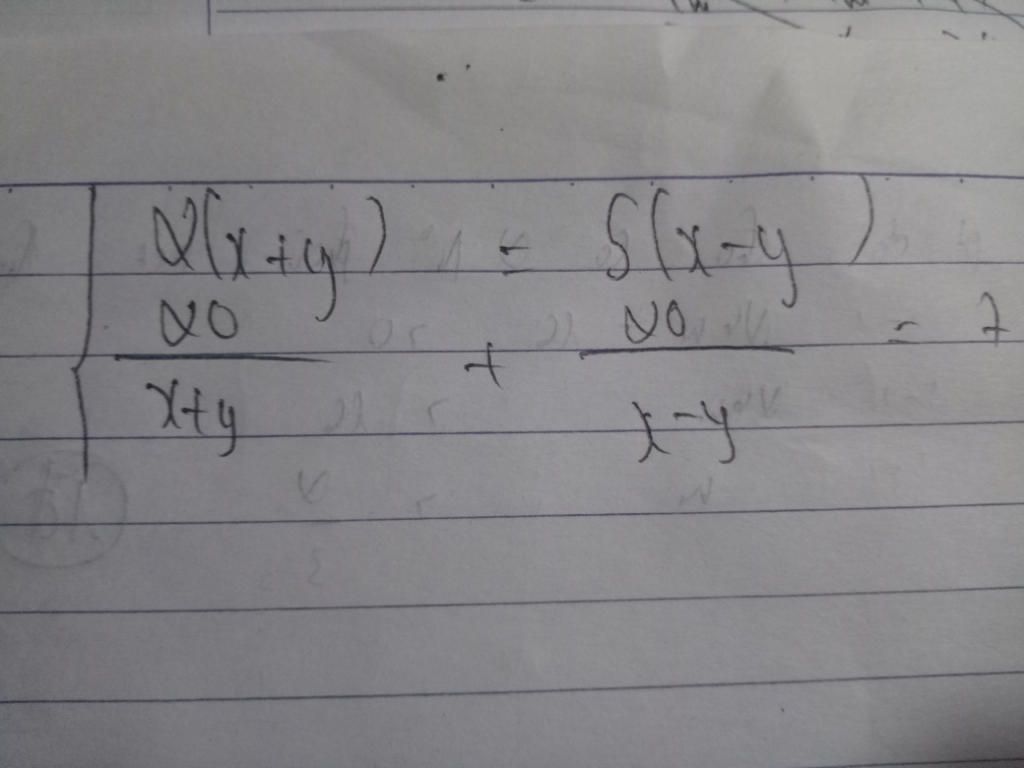 2(x+y) = 5(x-y)
20/(x+y) + 20/(x-y) = 7